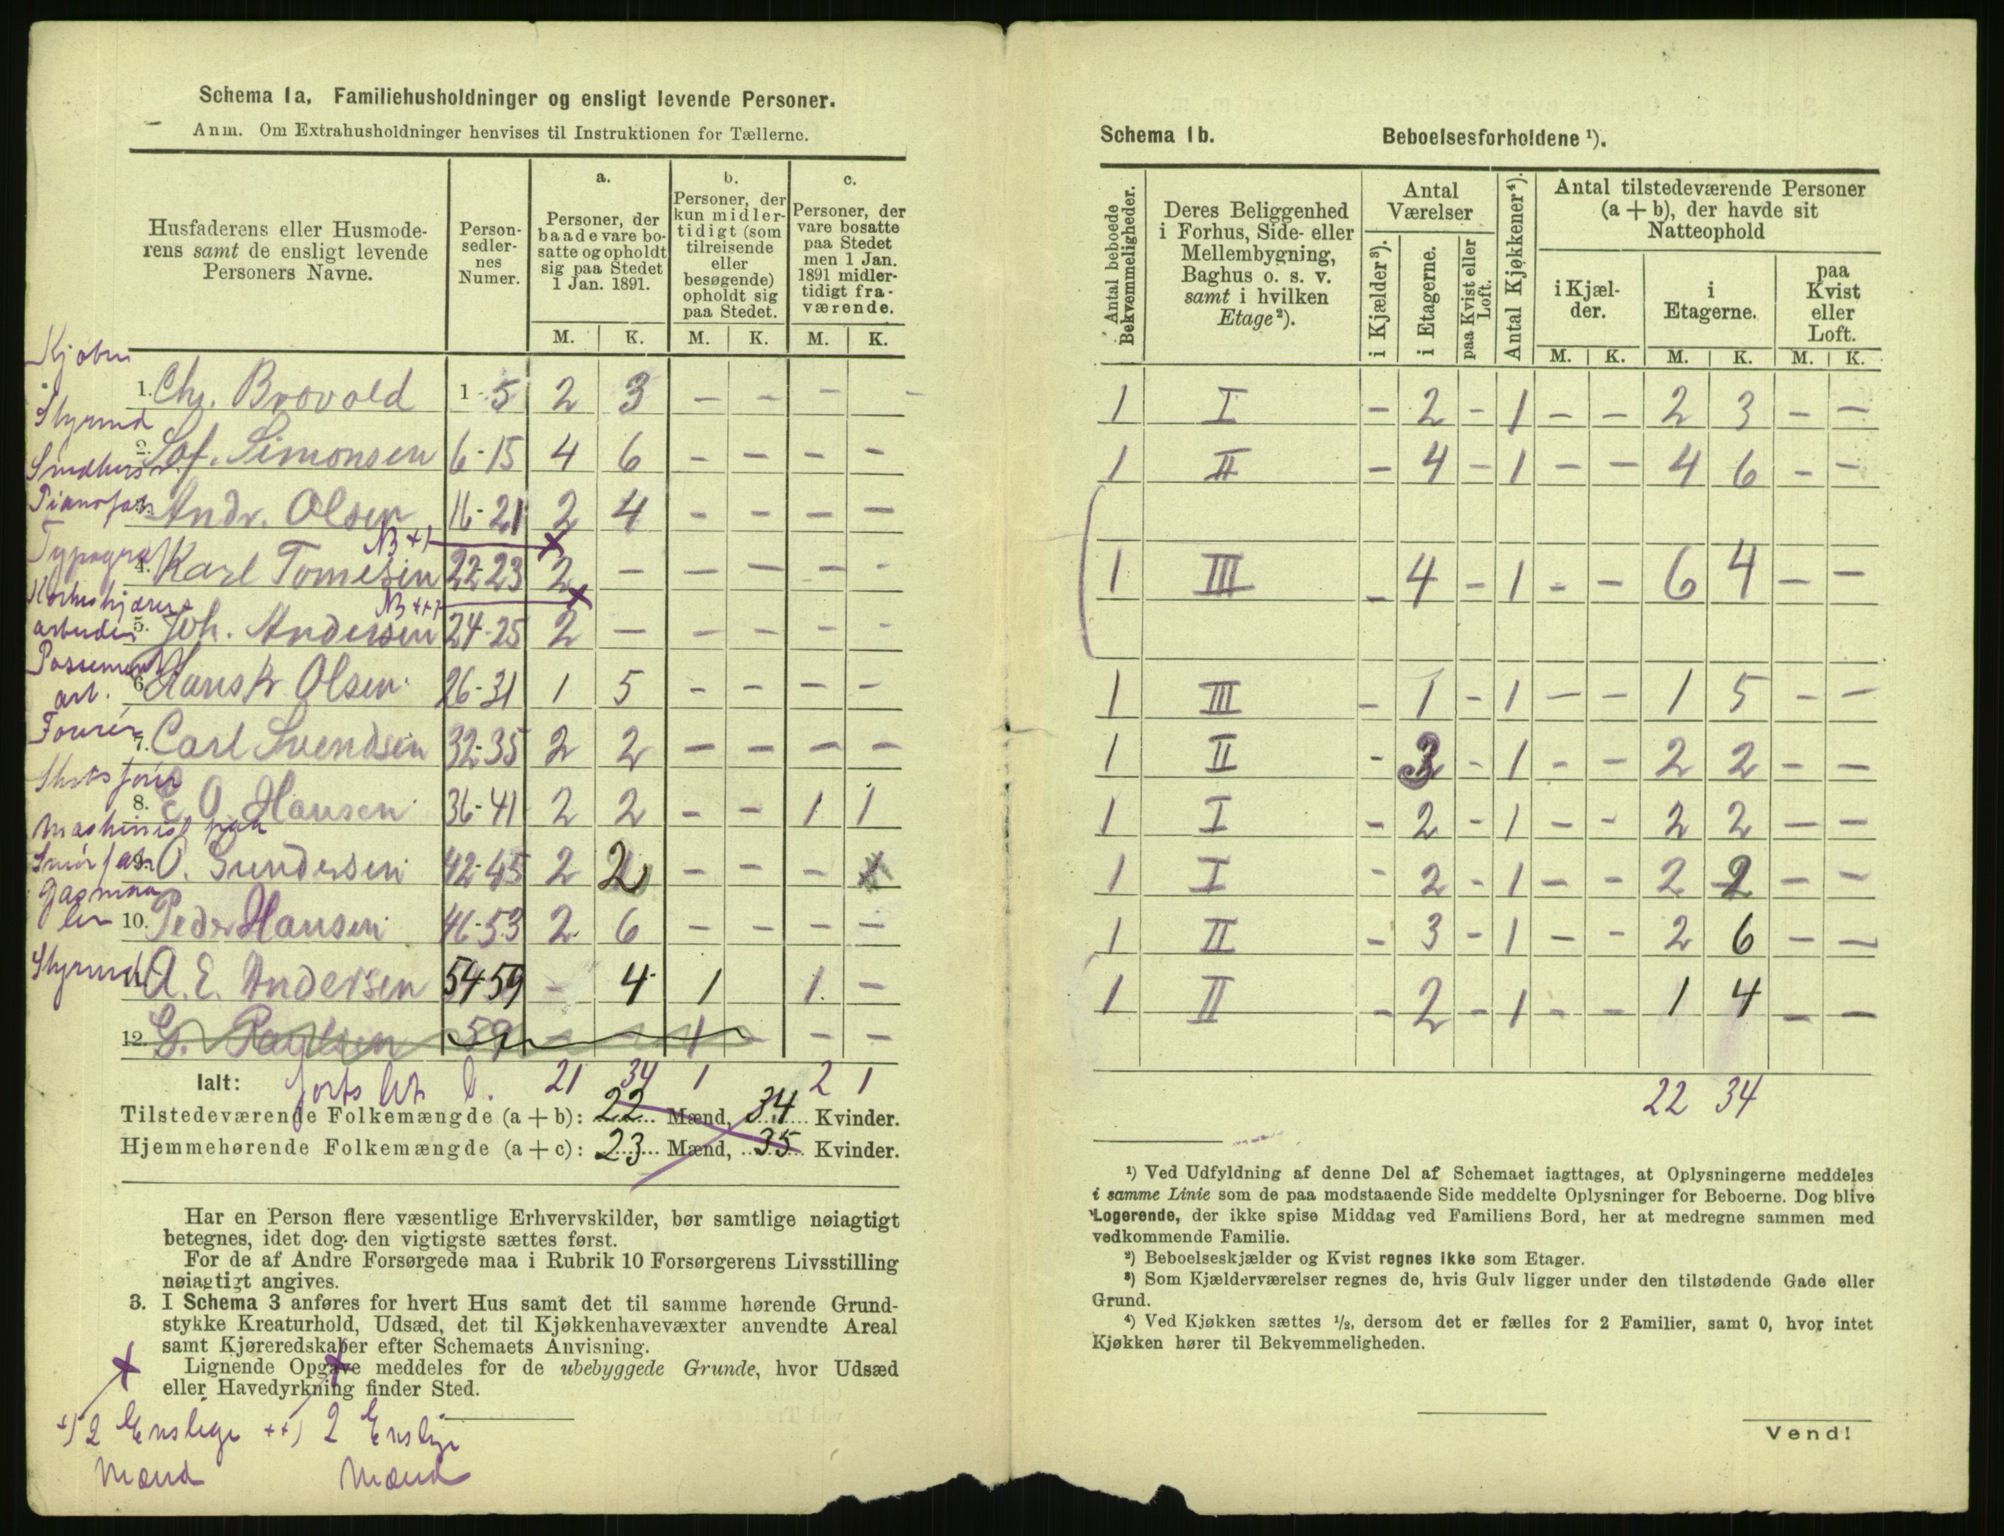 Schema 1a. Familiehusholdninger og ensligt levende Personer.
Anm. Om Extrahusholdninger henvises til Instruktionen for Tællerne.
Husfaderens eller Husmoderens samt de ensligt levende Personers Navne.
Personsedlernes Numer.
a. Personer, der baade vare bosatte og opholdt sig paa Stedet 1 Jan. 1891.
b. Personer, der kun midlertidigt (som tilreisende eller besøgende) opholdt sig paa Stedet.
c. Personer, der vare bosatte paa Stedet men 1 Jan. 1891 midlertidigt fraværende.
M. K. M. K. M. K.
1. Chr. Brovold 1-5 2 3 – – – –
Styrmd
2. Sof. Simonsen 6-15 4 6 – – – –
3. Andr. Olsen 16-21 2 4 – – – –
NB +)
4. Karl Tomesen 22-23 2 – – – – –
NB ++)
5. Joh. Andersen 24-25 2 – – – – –
arbeider
6. Hans Kr. Olsen 26-31 1 5 – – – –
arb.
7. Carl Svendsen 32-35 2 2 – – – –
8. C. O. Hansen 36-41 2 2 – – 1 1
9. O. Gundersen 42-45 2 2 – – –
10. Peder Hansen 46-53 2 6 – – – –
Styrmd
11. A. E. Andersen 54-59 – 4 1 1 –
12. G. Paulsen 59 – – 1 – –
Ialt: forts Lit b. 21 34 1 2 1
Tilstedeværende Folkemængde (a + b): 22 Mænd, 34 Kvinder.
Hjemmehørende Folkemængde (a + c): 23 Mænd, 35 Kvinder.
Har en Person flere væsentlige Erhvervskilder, bør samtlige nøiagtigt
betegnes, idet dog den vigtigste sættes først.
For de af Andre Forsørgede maa i Rubrik 10 Forsørgerens Livsstilling
nøiagtigt angives.
3. I Schema 3 anføres for hvert Hus samt det til samme hørende Grund-
stykke Kreaturhold, Udsæd, det til Kjøkkenhavevæxter anvendte Areal
samt Kjøreredskaber efter Schemaets Anvisning.
Lignende Opgave meddeles for de ubebyggede Grunde, hvor Udsæd
eller Havedyrkning finder Sted.
+) 2 Enslige ++) 2 Enslige
Mænd Mænd
Schema 1b. Beboelsesforholdene ¹).
Antal beboede Bekvemmeligheder.
Deres Beliggenhed i Forhus, Side- eller Mellembygning, Baghus o. s. v. samt i hvilken Etage²).
Antal Værelser
i Kjælder³).
i Etagerne.
paa Kvist eller Loft.
Antal Kjøkkener⁴).
Antal tilstedeværende Personer (a + b), der havde sit Natteophold
i Kjælder.
i Etagerne.
paa Kvist eller Loft.
M. K. M. K. M. K.
1 I – 2 – 1 – – 2 3 – –
1 II – 4 – 1 – – 4 6 – –
1 III – 4 – 1 – – 6 4 – –
1 III – 1 – 1 – – 1 5 – –
1 II – 3 – 1 – – 2 2 – –
1 I – 2 – 1 – – 2 2 – –
1 I – 2 – 1 – – 2 2 – –
1 II – 3 – 1 – – 2 6 – –
1 II – 2 – 1 – – 1 4 – –
22 34
¹) Ved Udfyldning af denne Del af Schemaet iagttages, at Oplysningerne meddeles
i samme Linie som de paa modstaaende Side meddelte Oplysninger for Beboerne. Dog blive
Logerende, der ikke spise Middag ved Familiens Bord, her at medregne sammen med
vedkommende Familie.
²) Beboelseskjælder og Kvist regnes ikke som Etager.
³) Som Kjælderværelser regnes de, hvis Gulv ligger under den tilstødende Gade eller
Grund.
⁴) Ved Kjøkken sættes ½, dersom det er fælles for 2 Familier, samt 0, hvor intet
Kjøkken hører til Bekvemmeligheden.
Vend!